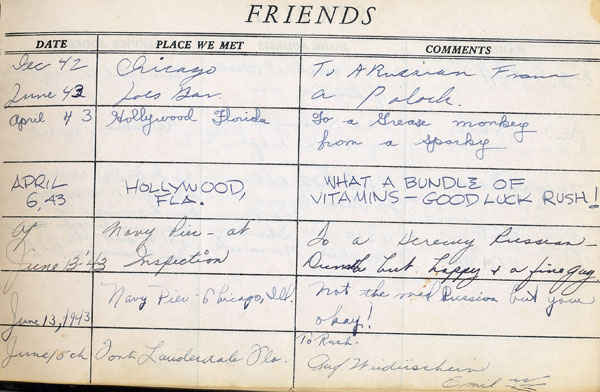 FRIENDS
DATE PLACE WE MET COMMENTS
Dec 42 Chicago To A Russian From
June 43 a Polock.
April 43 Hollywood Florida To a Grease monkey
from a Sparky
APRIL HOLLYWOOD, WHAT A BUNDLE OF
6, 43 FLA. VITAMINS – GOOD LUCK RUSH!
Navy Pier – at To a Russian –
June 13 '43 Inspection but happy & a fine guy.
Navy Pier - Chicago, Ill. Not the mad Russian but your
June 13, 1943 okay!
To Rush.
June 15th Fort Lauderdale Fla.
Emil